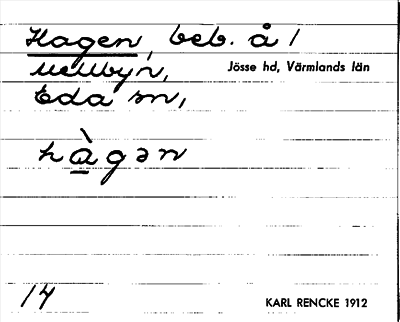 Hagen, beb. å /
Mellbyn,
Jösse hd, Värmlands län
Eda sn,
hàgən
14
KARL RENCKE 1912